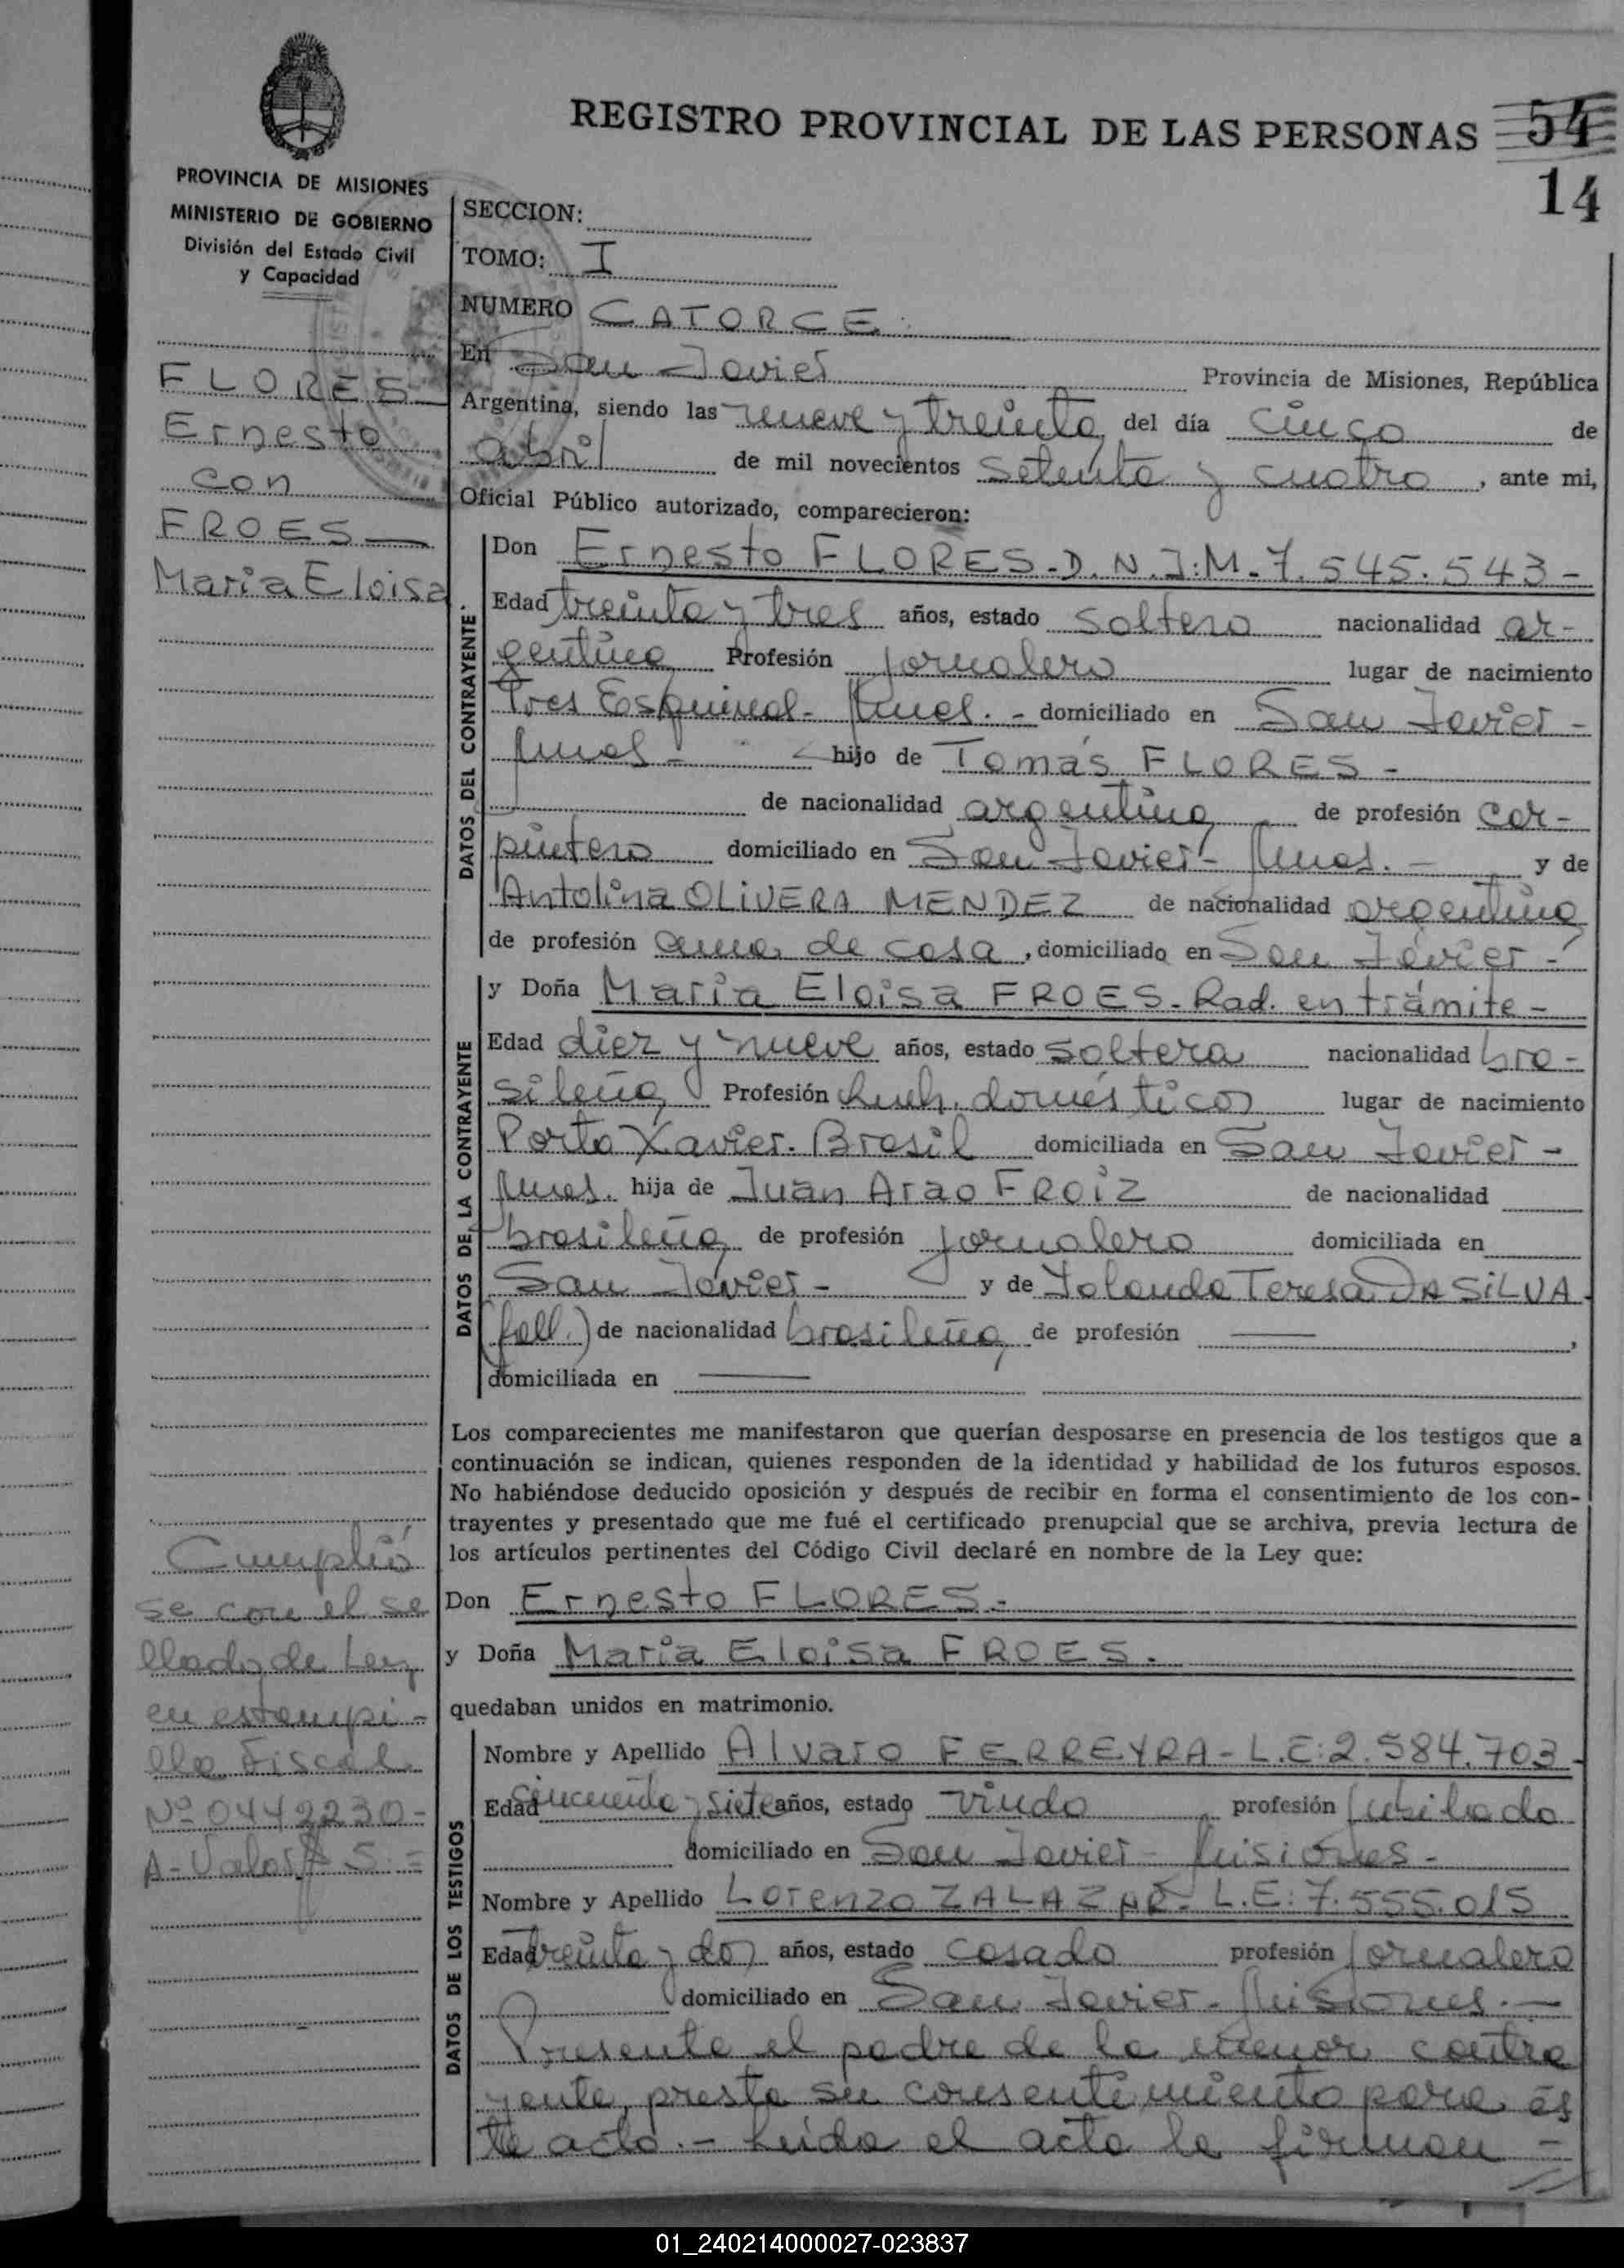 REGISTRO PROVINCIAL DE LAS PERSONAS 54
14
PROVINCIA DE MISIONES
MINISTERIO DE GOBIERNO
División del Estado Civil
y Capacidad
FLORES
Ernesto
con
FROES
Maria Eloisa
SECCION:
TOMO: I
NUMERO CATORCE.
En San Javier Provincia de Misiones, República
Argentina, siendo las nueve y treinta del día cinco de
abril de mil novecientos setenta y cuatro, ante mi,
Oficial Público autorizado, comparecieron:
DATOS DEL CONTRAYENTE.
Don Ernesto FLORES - D.N.I: M-7.545.543-
Edad treinta y tres años, estado soltero nacionalidad ar-
gentina Profesión jornalero lugar de nacimiento
Tres Esquinas - Mnes. - domiciliado en San Javier -
Mnes - hijo de Tomás FLORES -
de nacionalidad argentina de profesión car-
pintero domiciliado en San Javier - Mnes. - y de
Antolina OLIVERA MENDEZ de nacionalidad argentina
de profesión ama de casa, domiciliado en San Javier -
DATOS DE LA CONTRAYENTE
y Doña Maria Eloisa FROES - Rad. en trámite -
Edad diez y nueve años, estado soltera nacionalidad bra-
sileña Profesión Queh. domésticos lugar de nacimiento
Porto Xavier - Brasil domiciliada en San Javier -
Mnes. hija de Juan Arao FROIZ de nacionalidad
brasileña de profesión jornalero domiciliada en
San Javier - y de Yolanda Teresa DA SILVA.
(fall.) de nacionalidad brasileña, de profesión ——,
domiciliada en ——
Los comparecientes me manifestaron que querían desposarse en presencia de los testigos que a
continuación se indican, quienes responden de la identidad y habilidad de los futuros esposos.
No habiéndose deducido oposición y después de recibir en forma el consentimiento de los con-
trayentes y presentado que me fué el certificado prenupcial que se archiva, previa lectura de
los artículos pertinentes del Código Civil declaré en nombre de la Ley que:
Don Ernesto FLORES.-
y Doña Maria Eloisa FROES.
quedaban unidos en matrimonio.
Cumplió
se con el se
llado de Ley
en estampi-
lla Fiscal
Nº 0442230-
A- Valor $ 5.=
DATOS DE LOS TESTIGOS
Nombre y Apellido Alvaro FERREYRA - L.E: 2.584.703-
Edad cincuenta y siete años, estado viudo profesión jubilado
domiciliado en San Javier - Misiones -
Nombre y Apellido Lorenzo ZALAZAR - L.E: 7.555.015
Edad treinta y dos años, estado casado profesión jornalero
domiciliado en San Javier - Misiones. -
Presente el padre de la menor contra
yente, presta su consentimiento para es
te acto.- Leida el acta la firman -
01_240214000027-023837